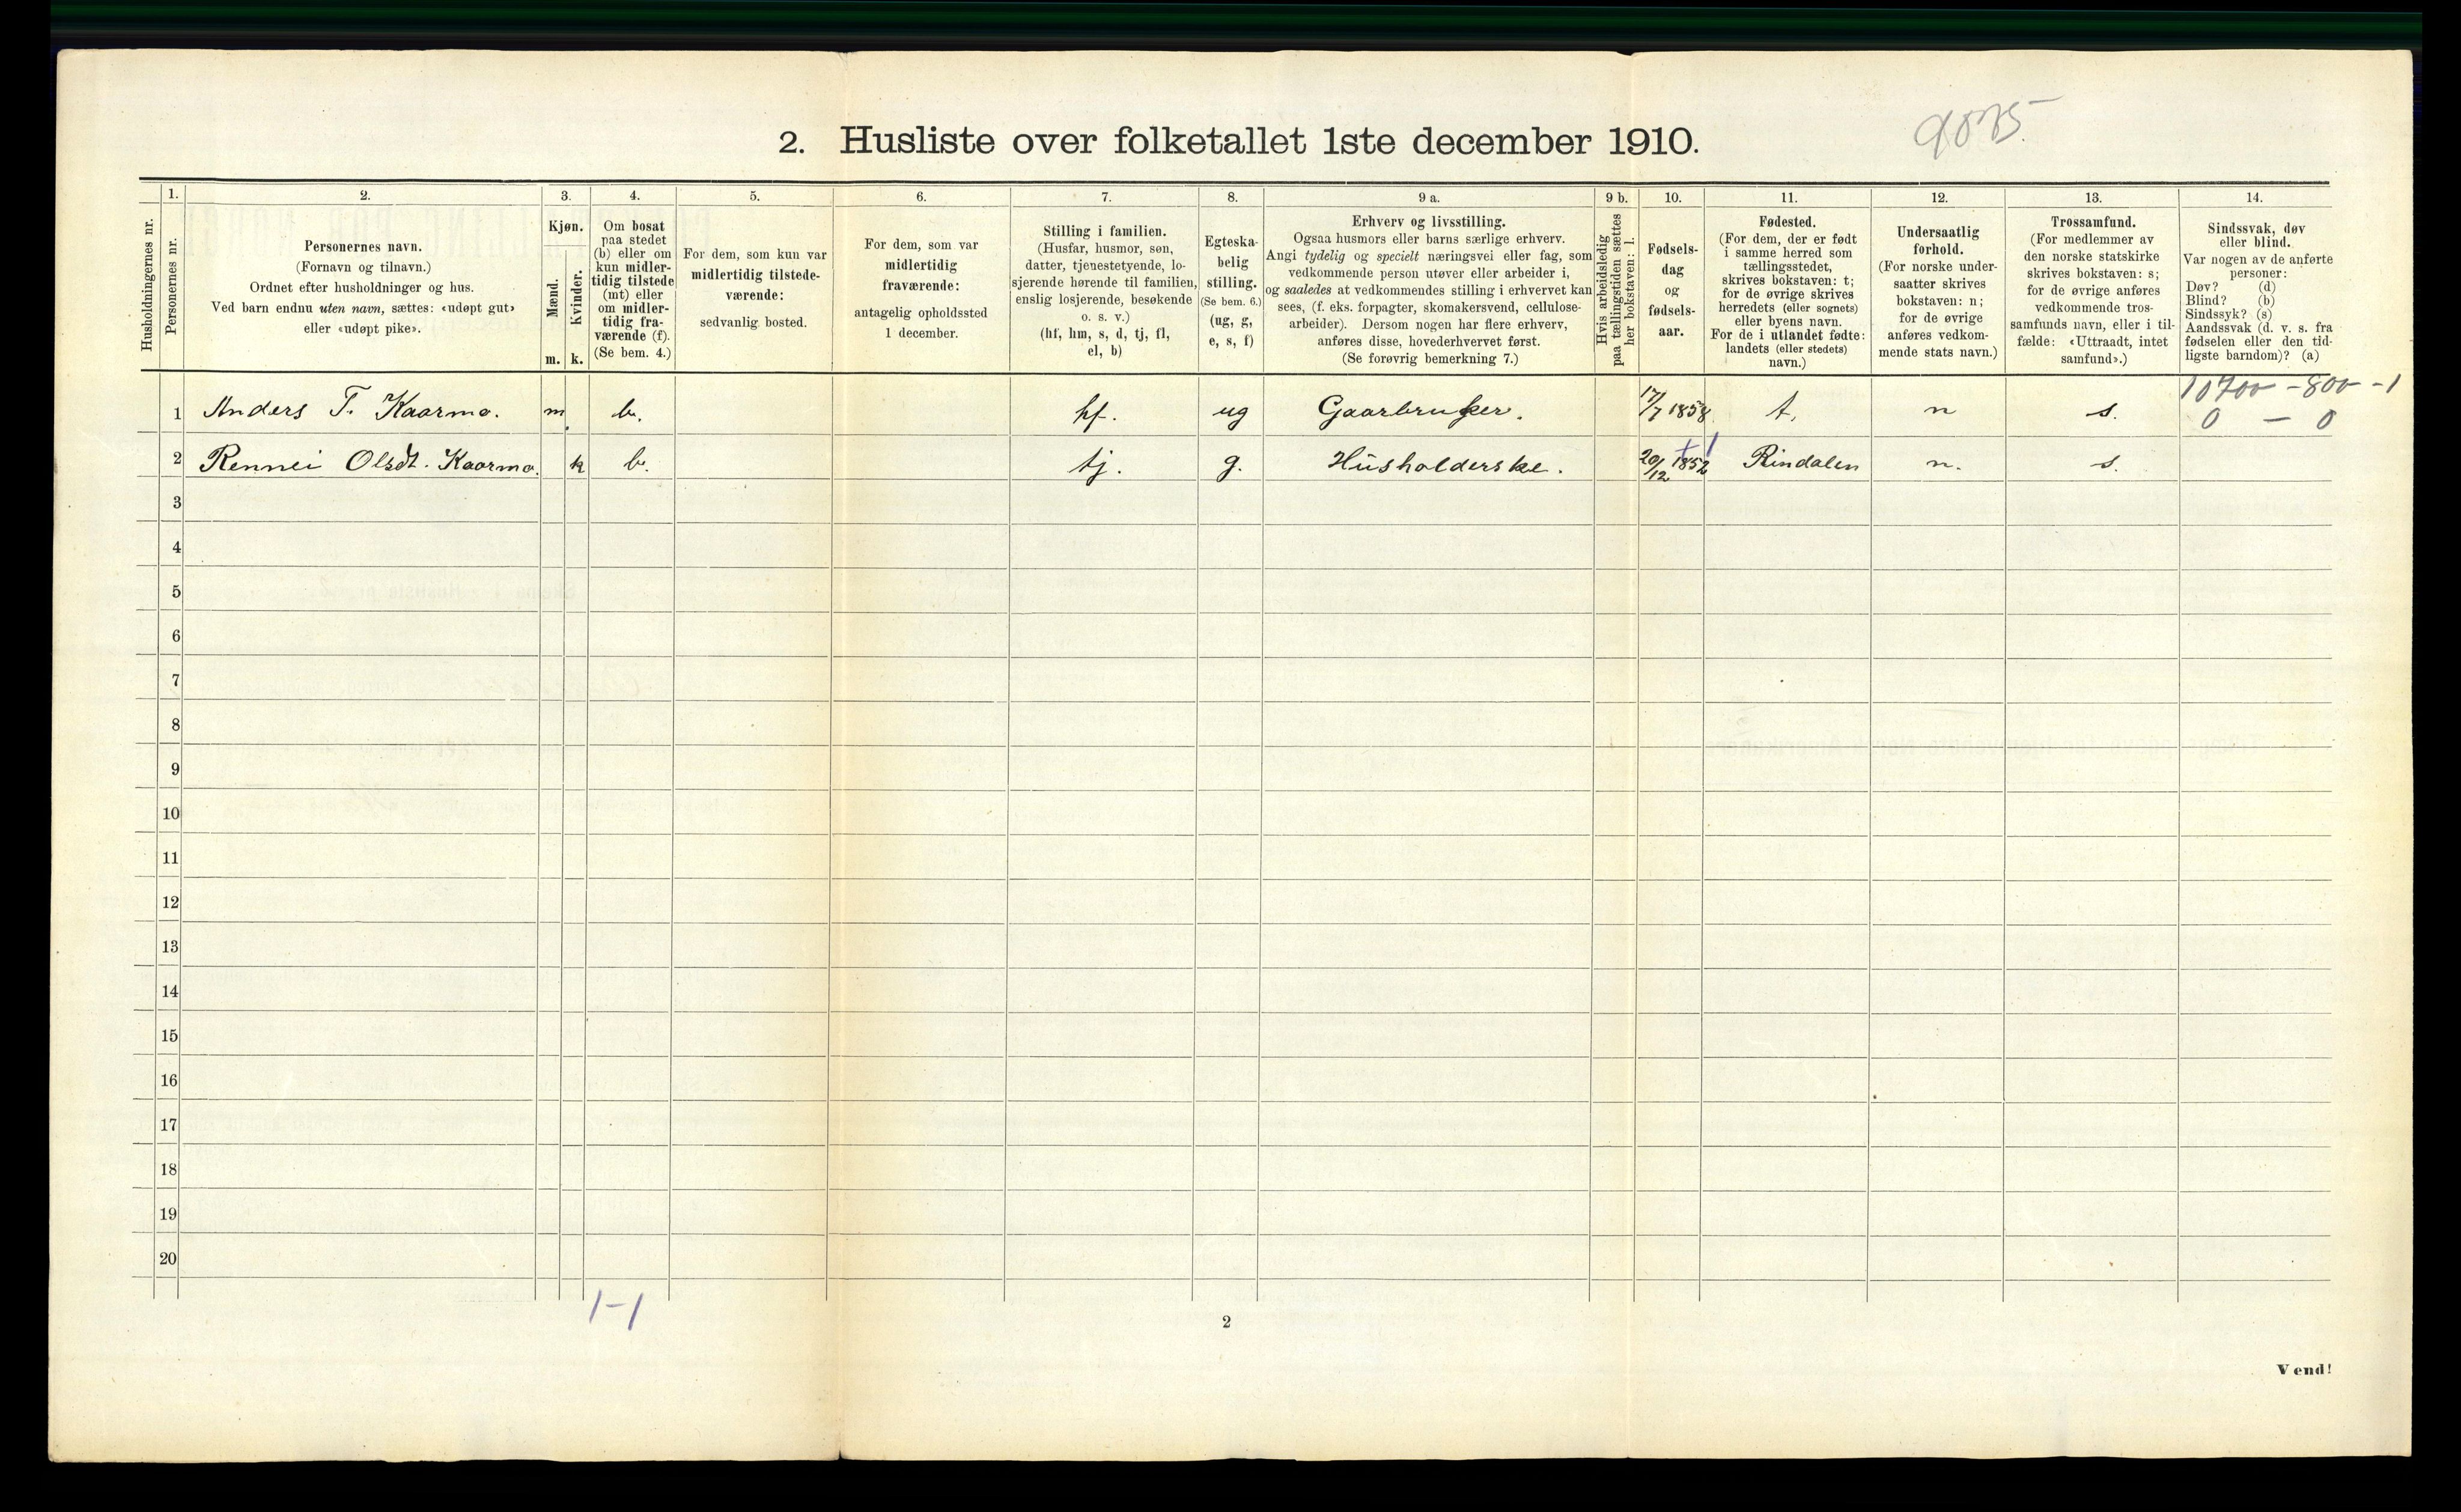 2. Husliste over folketallet 1ste december 1910.
Husholdningernes nr.
1.
Personernes nr.
2.
Personernes navn.
(Fornavn og tilnavn.)
Ordnet efter husholdninger og hus.
Ved barn endnu uten navn, sættes: «udøpt gut»
eller «udøpt pike».
3.
Kjøn.
Mænd.
Kvinder.
m. k.
4.
Om bosat
paa stedet
(b) eller om
kun midler-
tidig tilstede
(mt) eller
om midler-
tidig fra-
værende (f).
(Se bem. 4.)
5.
For dem, som kun var
midlertidig tilstede-
værende:
sedvanlig bosted.
6.
For dem, som var
midlertidig
fraværende:
antagelig opholdssted
1 december.
7.
Stilling i familien.
(Husfar, husmor, søn,
datter, tjenestetyende, lo-
sjerende hørende til familien,
enslig losjerende, besøkende
o. s. v.)
(hf, hm, s, d, tj, fl,
el, b)
8.
Egteska-
belig
stilling.
(Se bem. 6.)
(ug, g,
e, s, f)
9 a.
Erhverv og livsstilling.
Ogsaa husmors eller barns særlige erhverv.
Angi tydelig og specielt næringsvei eller fag, som
vedkommende person utøver eller arbeider i,
og saaledes at vedkommendes stilling i erhvervet kan
sees, (f. eks. forpagter, skomakersvend, cellulose-
arbeider). Dersom nogen har flere erhverv,
anføres disse, hovederhvervet først.
(Se forøvrig bemerkning 7.)
9 b.
Hvis arbeidsledig
paa tællingstiden sættes
her bokstaven: l.
10.
Fødsels-
dag
og
fødsels-
aar.
11.
Fødested.
(For dem, der er født
i samme herred som
tællingsstedet,
skrives bokstaven: t;
for de øvrige skrives
herredets (eller sognets)
eller byens navn.
For de i utlandet fødte:
landets (eller stedets)
navn.)
12.
Undersaatlig
forhold.
(For norske under-
saatter skrives
bokstaven: n;
for de øvrige
anføres vedkom-
mende stats navn.)
13.
Trossamfund.
(For medlemmer av
den norske statskirke
skrives bokstaven: s;
for de øvrige anføres
vedkommende tros-
samfunds navn, eller i til-
fælde: «Uttraadt, intet
samfund».)
14.
Sindssvak, døv
eller blind.
Var nogen av de anførte
personer:
Døv? (d)
Blind? (b)
Sindssyk? (s)
Aandssvak (d. v. s. fra
fødselen eller den tid-
ligste barndom)? (a)
10700 - 800 - 1
0 - 0
1 Anders T. Kaarmo. m b. hf. ug Gaarbruker. 17/7 1858 t. n s.
2 Rennei Olsdt. Kaarmo. k b. tj. g. Husholderske. 20/12 1852 Rindalen n. s.
3
4
5
6
7
8
9
10
11
12
13
14
15
16
17
18
19
20
1-1
2
Vend!